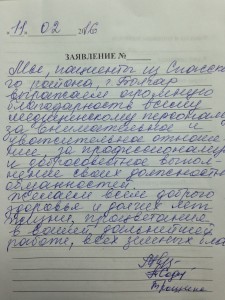 11. 02 2016
ЗАЯВЛЕНИЕ №
Мы, пациенты из Спасско-
го района, г. Болгар
выражаем огромную
благодарность всему
медицинскому персоналу
за внимательное и
уважительное отноше-
ние, за профессионализм
и добросовестное выпол-
нение своих должностных
обязанностей.
Желаем всем доброго
здоровья и долгих лет
жизни, процветания
в Вашей дальнейшей
работе, всех земных благ